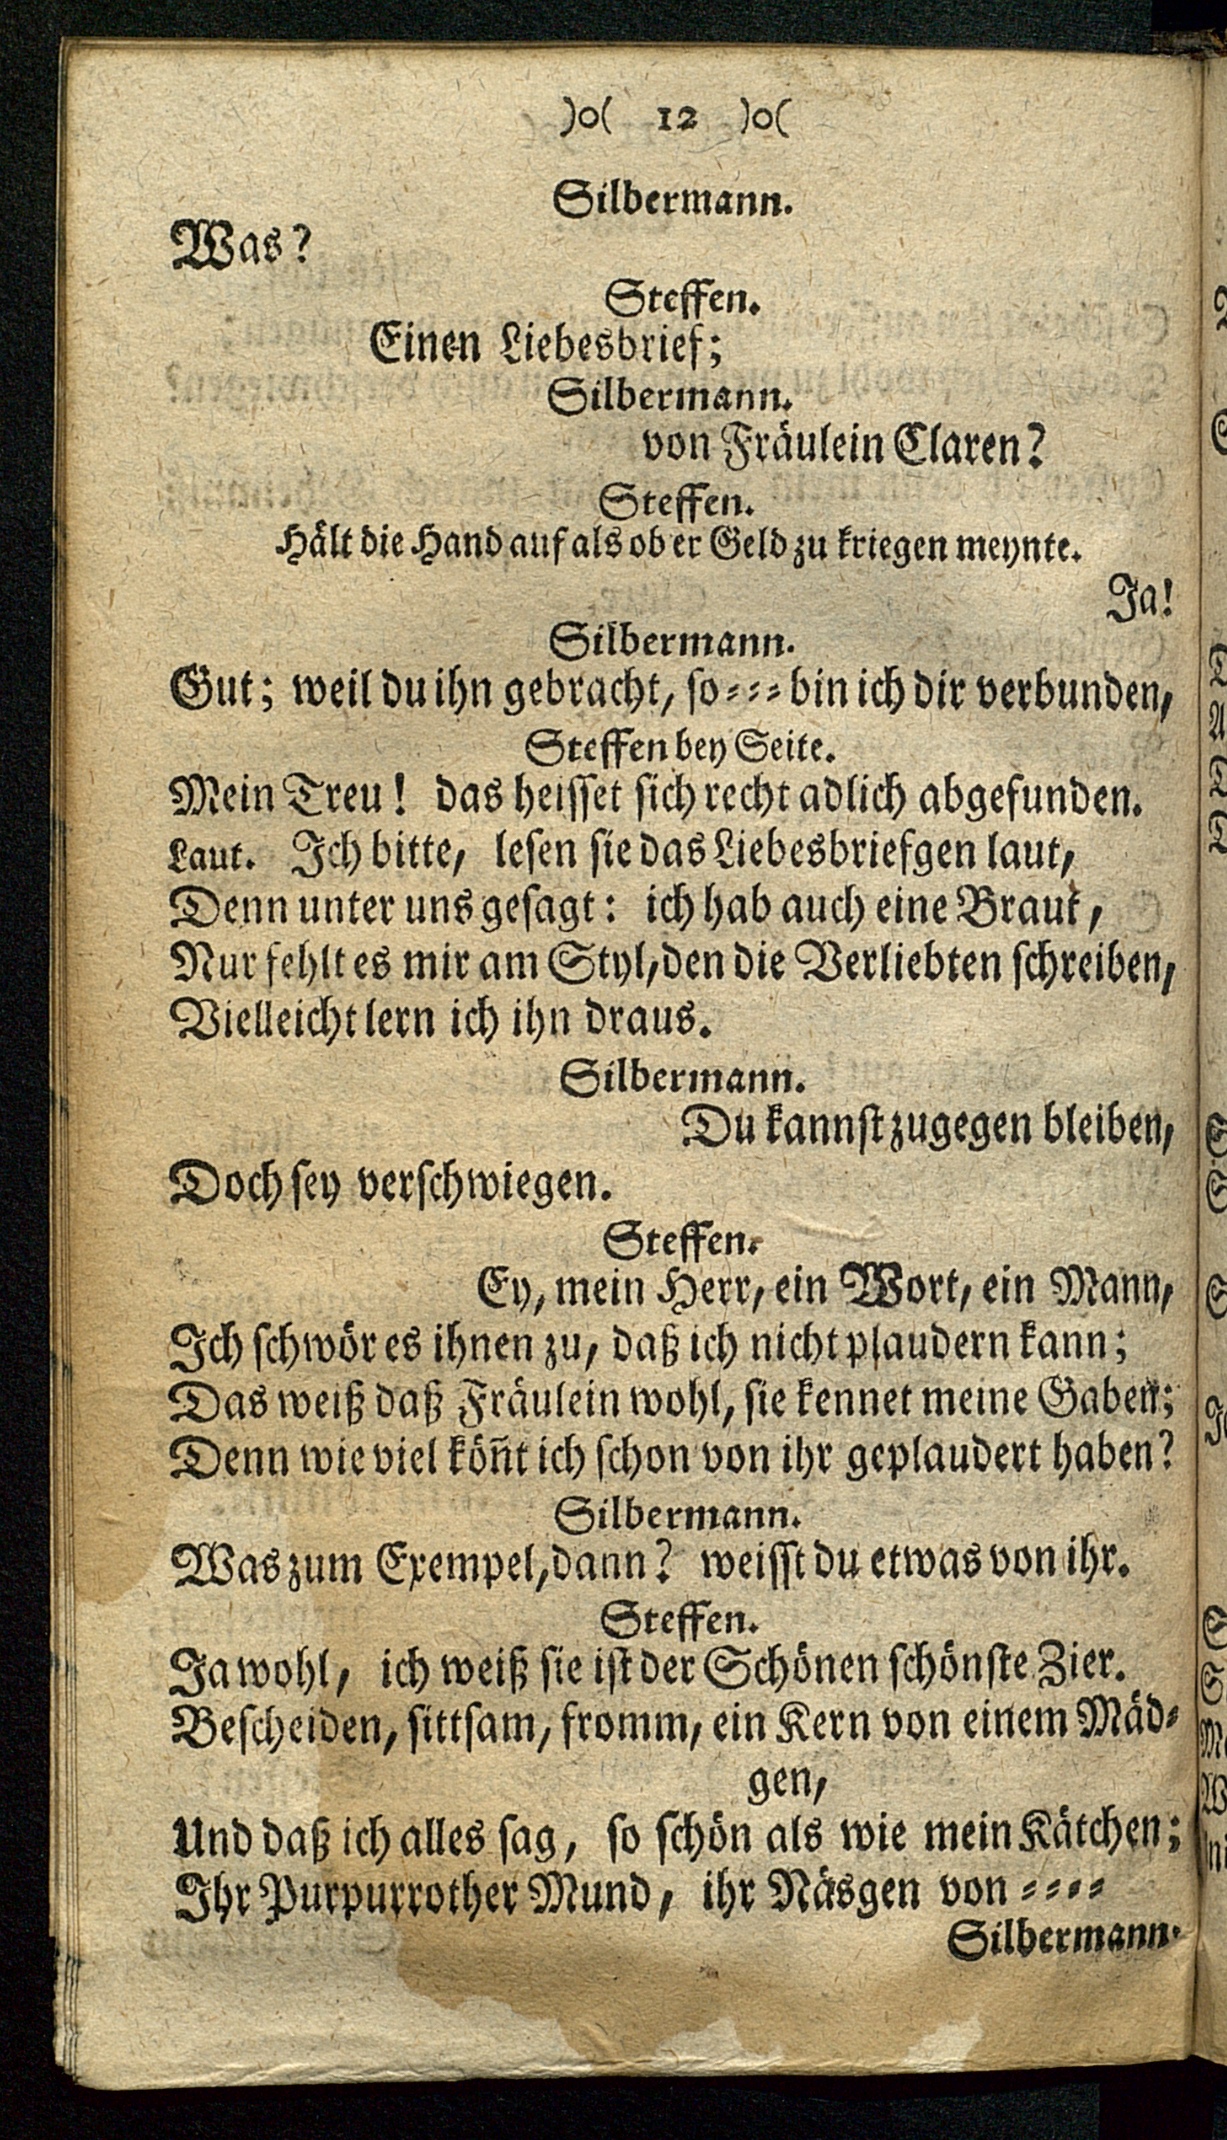 )o( 12 )o(
Silbermann.
Was?
Steffen.
Einen Liebesbrief;
Silbermann.
von Fräulein Claren?
Steffen.
Hält die Hand auf als ob er Geld zu kriegen meynte.
Ja!
Silbermann.
Gut; weil du ihn gebracht, so⸗⸗⸗bin ich dir verbunden,
Steffen bey Seite.
Mein Treu! das heisset sich recht adlich abgefunden.
Laut. Ich bitte, lesen sie das Liebesbriefgen laut,
Denn unter uns gesagt: ich hab auch eine Braut,
Nur fehlt es mir am Styl, den die Verliebten schreiben,
Vielleicht lern ich ihn draus.
Silbermann.
Du kannst zugegen bleiben,
Doch sey verschwiegen.
Steffen.
Ey, mein Herr, ein Wort, ein Mann,
Ich schwör es ihnen zu, daß ich nicht plaudern kann;
Das weiß daß Fräulein wohl, sie kennet meine Gaben;
Denn wie viel kön̄t ich schon von ihr geplaudert haben?
Silbermann.
Was zum Exempel, dann? weisst du etwas von ihr.
Steffen.
Ja wohl, ich weiß sie ist der Schönen schönste Zier.
Bescheiden, sittsam, fromm, ein Kern von einem Mäd⸗
gen,
Und daß ich alles sag, so schön als wie mein Kätchen;
Ihr Purpurrother Mund, ihr Näsgen von ⸗⸗⸗⸗
Silbermann.